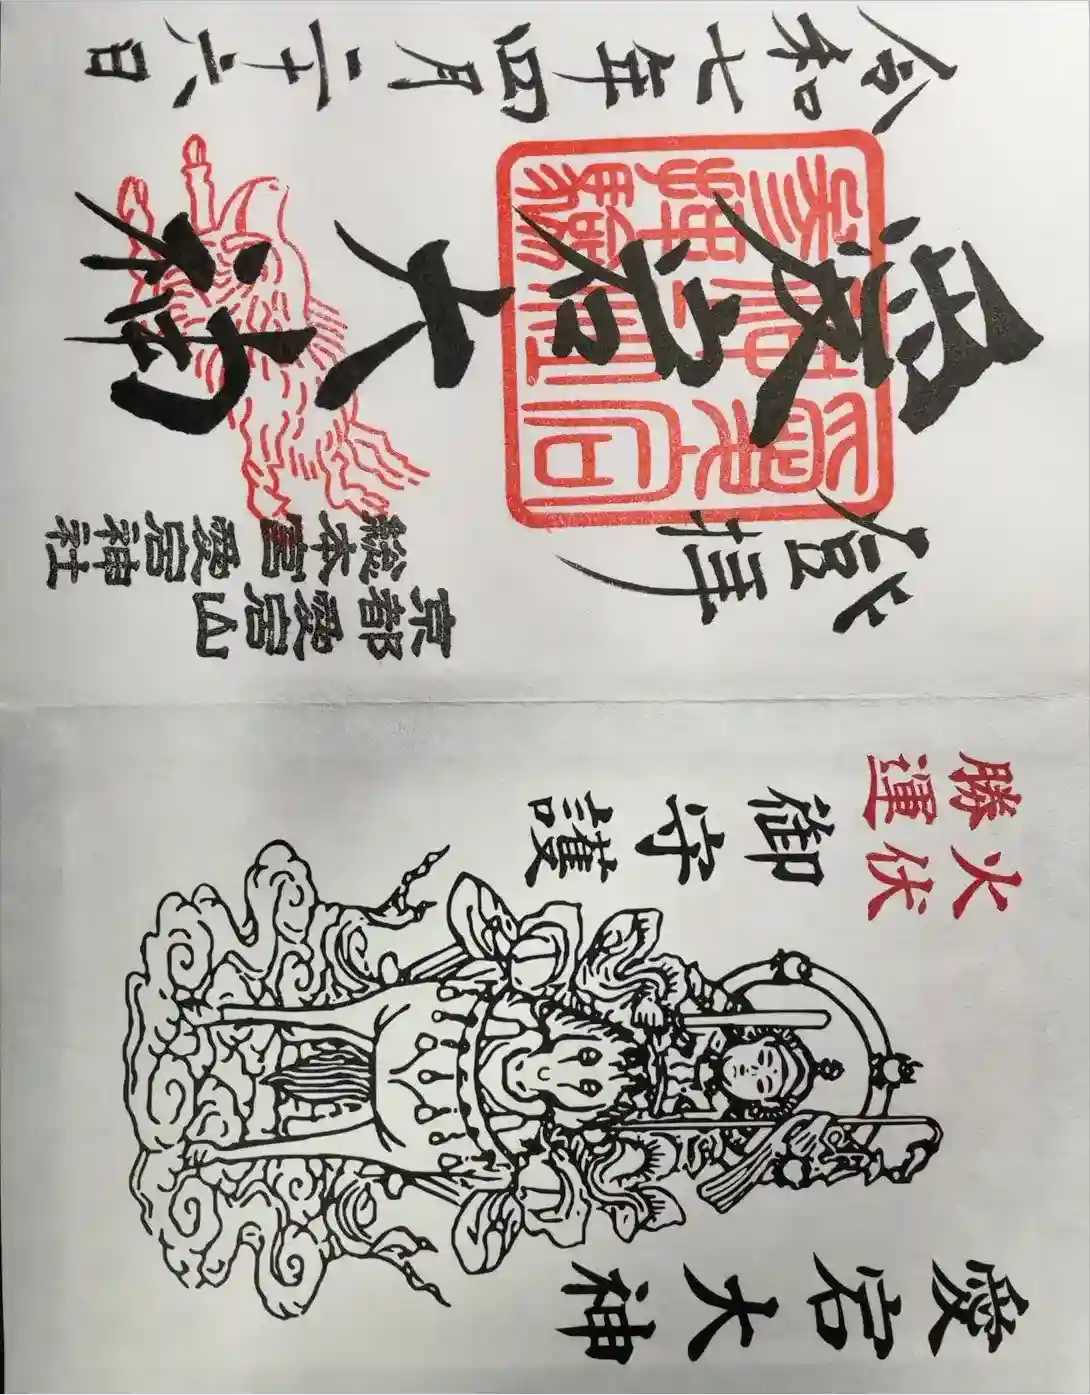 愛宕大神
火伏
勝運
御守護
京都愛宕山
総本宮愛宕神社
登拝
愛宕大神
令和七年四月二十六日